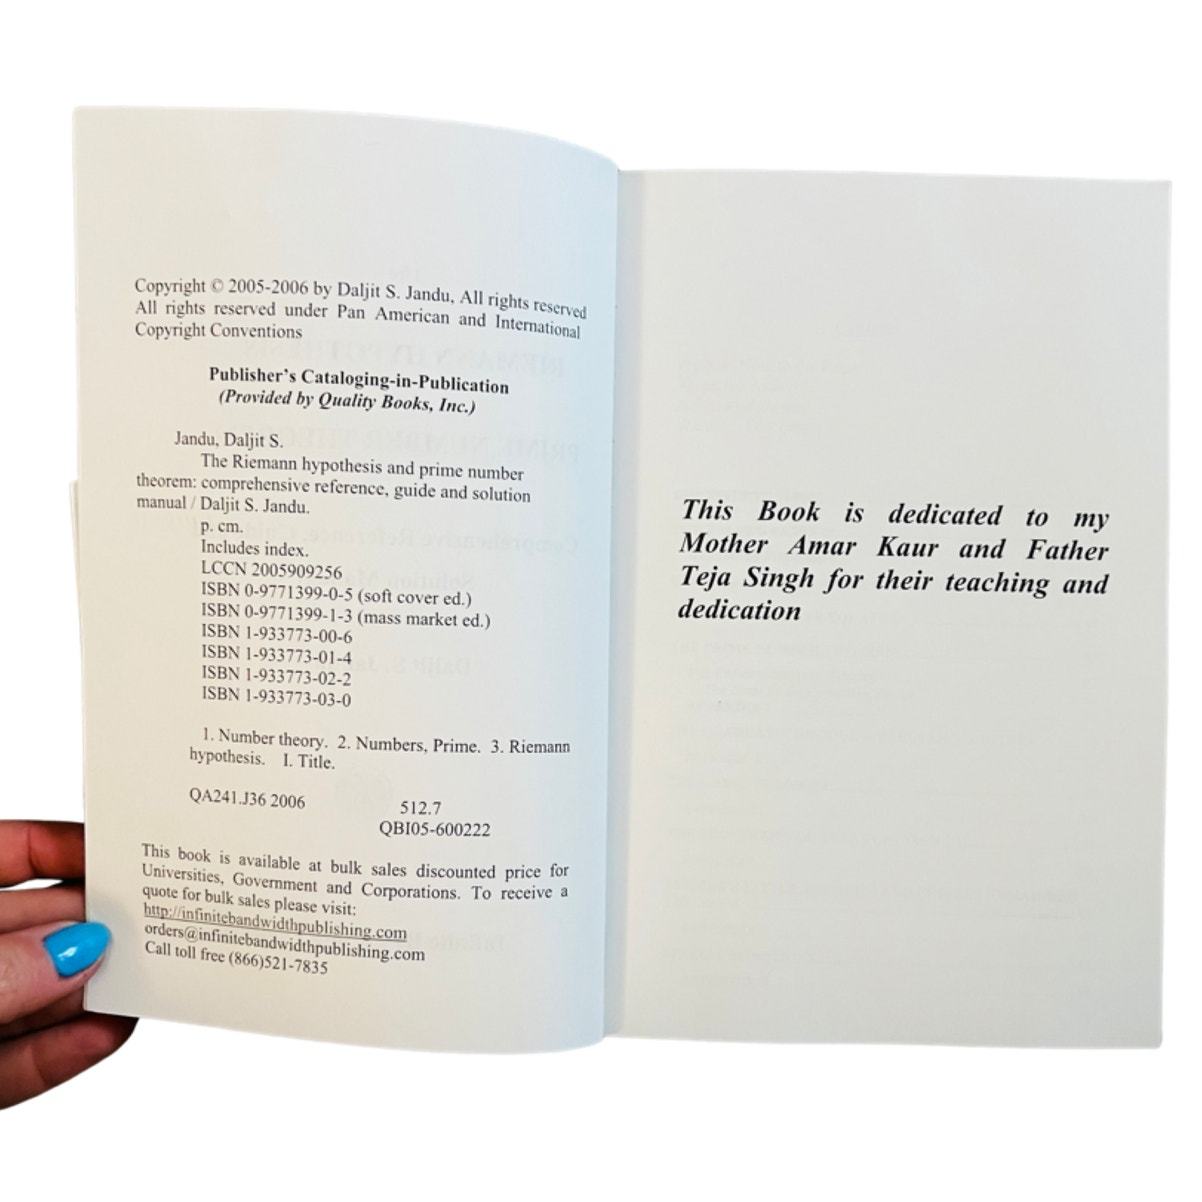 Copyright © 2005-2006 by Daljit S. Jandu, All rights reserved
All rights reserved under Pan American and International
Copyright Conventions
Publisher's Cataloging-in-Publication
(Provided by Quality Books, Inc.)
Jandu, Daljit S.
The Riemann hypothesis and prime number
theorem: comprehensive reference, guide and solution
manual / Daljit S. Jandu.
p. cm.
Includes index.
LCCN 2005909256
ISBN 0-9771399-0-5 (soft cover ed.)
ISBN 0-9771399-1-3 (mass market ed.)
ISBN 1-933773-00-6
ISBN 1-933773-01-4
ISBN 1-933773-02-2
ISBN 1-933773-03-0
1. Number theory. 2. Numbers, Prime. 3. Riemann
hypothesis. I. Title.
QA241.J36 2006
512.7
QBI05-600222
This book is available at bulk sales discounted price for
Universities, Government and Corporations. To receive a
quote for bulk sales please visit:
http://infinitebandwidthpublishing.com
orders@infinitebandwidthpublishing.com
Call toll free (866)521-7835
This Book is dedicated to my
Mother Amar Kaur and Father
Teja Singh for their teaching and
dedication